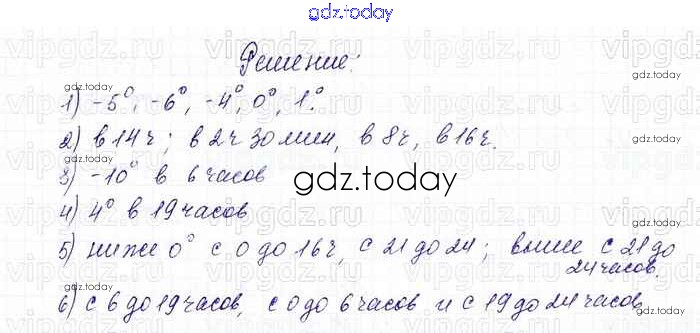 gdz.today
Решение:
1) -5°, -6°, -4°, 0°, 1°.
2) в 14 ч; в 2 ч 30 мин, в 8 ч, в 16 ч.
3) -10° в 6 часов
gdz.today
4) 4° в 19 часов
5) ниже 0° с 0 до 16 ч, с 21 до 24; выше с 21 до
24 часов.
6) с 6 до 19 часов, с 0 до 6 часов и с 19 до 24 часов